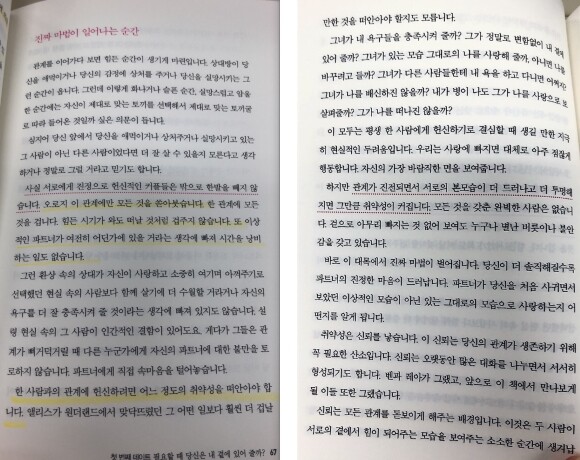 진짜 마법이 일어나는 순간
관계를 이어가다 보면 힘든 순간이 생기게 마련입니다. 상대방이 당
신을 애먹이거나 당신의 감정에 상처를 주거나 당신을 실망시키는 그
런 순간이 옵니다. 그런데 이렇게 화나거나 슬픈 순간, 실망스럽고 암울
한 순간에는 자신이 제대로 맞는 토끼를 선택해서 제대로 맞는 토끼굴
로 따라 들어온 것일까 싶은 의문이 듭니다.
심지어 당신 앞에서 당신을 애먹이거나 상처주거나 실망시키고 있는
그 사람이 아닌 다른 사람이었다면 더 잘 살 수 있을지 모른다고 생각
하거나 정말로 그럴 거라고 믿기도 합니다.
사실 서로에게 진정으로 헌신적인 커플들은 밖으로 한발을 빼지 않
습니다. 오로지 이 관계에만 모든 것을 쏟아붓습니다. 한 관계에 모든
것을 겁니다. 힘든 시기가 와도 떠날 것처럼 겁주지 않습니다. 또 이상
적인 파트너가 여전히 어딘가에 있을 거라는 생각에 빠져 시간을 낭비
하는 일도 없습니다.
그런 환상 속의 상대가 자신이 사랑하고 소중히 여기며 아껴주기로
선택했던 현실 속의 사람보다 함께 살기에 더 수월할 거라거나 자신의
욕구를 더 잘 충족시켜 줄 것이라는 생각에 빠져 있지도 않습니다. 설
령 현실 속의 그 사람이 인간적인 결함이 있어도요. 게다가 그들은 관
계가 삐거덕거릴 때 다른 누군가에게 자신의 파트너에 대한 불만을 토
로하지 않습니다. 파트너에게 직접 속마음을 털어놓습니다.
한 사람과의 관계에 헌신하려면 어느 정도의 취약성을 떠안아야 합
니다. 앨리스가 원더랜드에서 맞닥뜨렸던 그 어떤 일보다 훨씬 더 겁날
첫 번째 데이트 필요할 때 당신은 내 곁에 있어 줄까? 67
만한 것을 떠안아야 할지도 모릅니다.
그녀가 내 욕구들을 충족시켜 줄까? 그가 정말로 변함없이 내 곁에
있어 줄까? 그녀가 있는 모습 그대로의 나를 사랑해 줄까, 아니면 나를
바꾸려고 들까? 그녀가 다른 사람들한테 내 욕을 하고 다니면 어쩌지?
그녀가 나를 배신하진 않을까? 내가 병이 나도 그가 나를 사랑으로 보
살펴줄까? 그가 나를 떠나진 않을까?
이 모두는 평생 한 사람에게 헌신하기로 결심할 때 생길 만한 지극
히 현실적인 두려움입니다. 우리는 사랑에 빠지면 대체로 아주 점잖게
행동합니다. 자신의 가장 바람직한 면을 보여줍니다.
하지만 관계가 진전되면서 서로의 본모습이 더 드러나고 더 투명해
지면 그만큼 취약성이 커집니다. 모든 것을 갖춘 완벽한 사람은 없습니
다. 겉으로 아무리 빠지는 것 없어 보여도 누구나 별난 버릇이나 불안
감을 갖고 있습니다.
바로 이 대목에서 진짜 마법이 벌어집니다. 당신이 더 솔직해질수록
파트너의 진정한 마음이 드러납니다. 파트너가 당신을 처음 사귀면서
보았던 이상적인 모습이 아닌 있는 그대로의 모습으로 사랑하는지 어
떤지를 알게 됩니다.
취약성은 신뢰를 낳습니다. 이 신뢰는 당신의 관계가 생존하기 위해
꼭 필요한 산소입니다. 신뢰는 오랫동안 많은 대화를 나누면서 서서히
형성되기도 합니다. 벤과 레아가 그랬고, 앞으로 이 책에서 만나보게
될 이들 또한 그랬습니다.
신뢰는 모든 관계를 돋보이게 해주는 배경입니다. 이것은 두 사람이
서로의 곁에서 힘이 되어주는 모습을 보여주는 소소한 순간에 생겨납